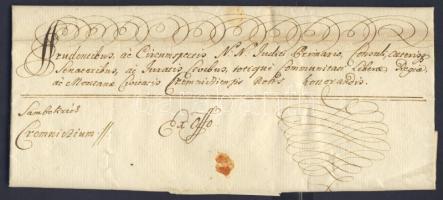 Prudentibus, ac Circumspectis N.N. Judici Primario, Consuli, caeterisq
Senatoribus, ac Juratis Civibus, totique Communitati Liberae Regiae
ac Montanae Civitatis Cremniciensis Dominis honorandis.
Sambokreth
Cremniczium
Ex Offo